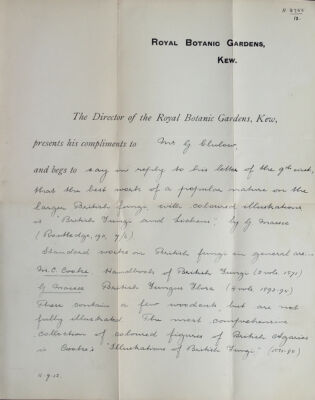 12.
ROYAL BOTANIC GARDENS,
KEW.
The Director of the Royal Botanic Gardens, Kew,
presents his compliments to Mr G
and begs to say in reply to his letter of the 9th inst,
that the best work of a popular nature on the
larger British fungi, with coloured illustrations
is "British Fungi and Lichens", by G Massee
(Routledge, 7/6)
Standard works on British fungi in general are:-
M.C. Cooke, Handbook of British Fungi (2 vols 1871)
G Massee British Fungus Flora (4 vols 1892-94)
These contain a few woodcuts but are not
fully illustrated. The most comprehensive
collection of coloured figures of British Agarics
is Cooke's "Illustrations of British Fungi"
11.9.12.